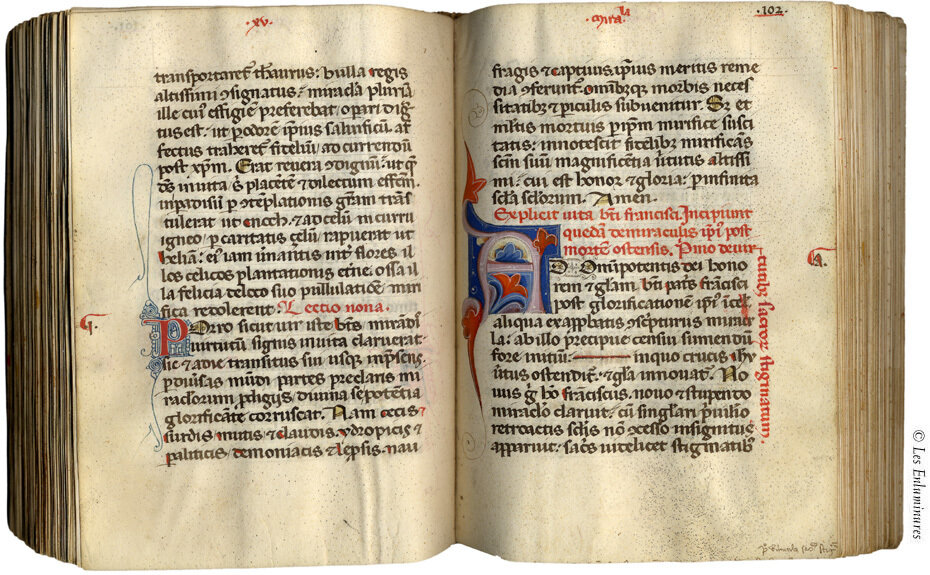 ·xv·
transportaret᷑ thaurus: bulla regis
altissimi ꝯsignatus: miracl̃a pluria
ille cuiꝰ effigiẽ preferebat, opari dig
tus est: ut ꝑ odorẽ ip̃ius salutificũ. af
fectus traheret᷑ fideliũ: ad currendũ
post xp̃m. Erat reuera ⁊dignũ: ut q̃
dẽs in uita
placẽtẽ ⁊dilectum
in padisũ ꝑ ꝯtẽplationis gr̃am trans
tulerat ut enoch: ⁊ad celũ in curru
igneo ꝑ caritatis çelũ rapuerat ut
helyam: eiꝰ iam
int᷑ flores il
los celicos plantationis et᷑ne: ossa il
la felicia de loco suo pullulatiõe miri
fica redolerent. Lectio nona.
Porro sicut uir iste bt̃s mirãdis
uirtutũ signis in uita claruerat:
sic ⁊a die transitus sui usq; in p̃sens
ꝑ diũsas mũdi partes preclaris mi
raculorum ꝓdigijs: diuina se põtẽtia
glorificãte corruscat. Nam cecis ⁊
surdis mutis ⁊claudis: ydropicis ⁊
paliticis: demoniacis ⁊lepsis: nau
mira
la
·102·
fragis ⁊captiuis: ip̃ius meritis reme
dia ꝯferunt᷑: omĩbꝫqꝫ morbis neces
sitatibꝫ ⁊piculis subuenitur. Sꝫ et
ml̃tis mortuis ꝑ ip̃m mirifice susci
tatis: innotescit fidelibꝫ mirificans
sc̃m suũ magnificẽtia uirtutis altissi
mi: cui est honor ⁊gloria: ꝑ infinita
sc̃la sc̃lorum. Amen.
Explicit uita bt̃i francisci. Incipiunt
quedã de miraculis ip̃ius post
mortẽm ostensis. P̃mo de uir
tutibꝫ sacroꝝ stigmatum.
AD Om̃ipotentis dei hono
rem ⁊gl̃am bt̃i pat᷑s frãcisci
post glorificationẽ ip̃ius ĩ cel̃
aliqua ex approbatis ꝯscripturus mirac
la: ab illo precipue censui sumendũ
fore initiũ:
in quo crucis ihũ
uirtus ostendit᷑: ⁊gl̃a innouat᷑. No
uus g̊ hõ frãciscus, nouo ⁊stupendo
miracl̃o claruit: cũ singlari priuil̃io
retroactis sc̃lis nõ ꝯcesso insignitus
apparuit: sacris uidelicet stigmatibꝫ
© Les Enluminures